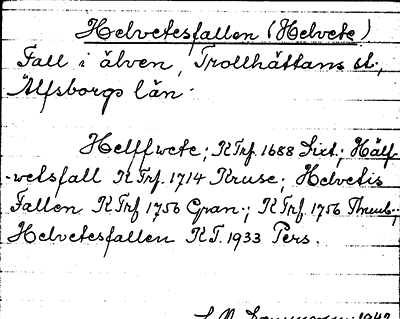 Helvetesfallen (Helvete)
Fall i älven, Trollhättans st.,
Älfsborgs län.
Helffwete; KTrf. 1688 Sixt.; Hälf-
wetsfall KTrf. 1714 Kruse; Helvetis
Fallen KTrf 1756 Gran.; KTrf. 1756 Thunb.;
Helvetesfallen KT. 1933 Pers.
1942